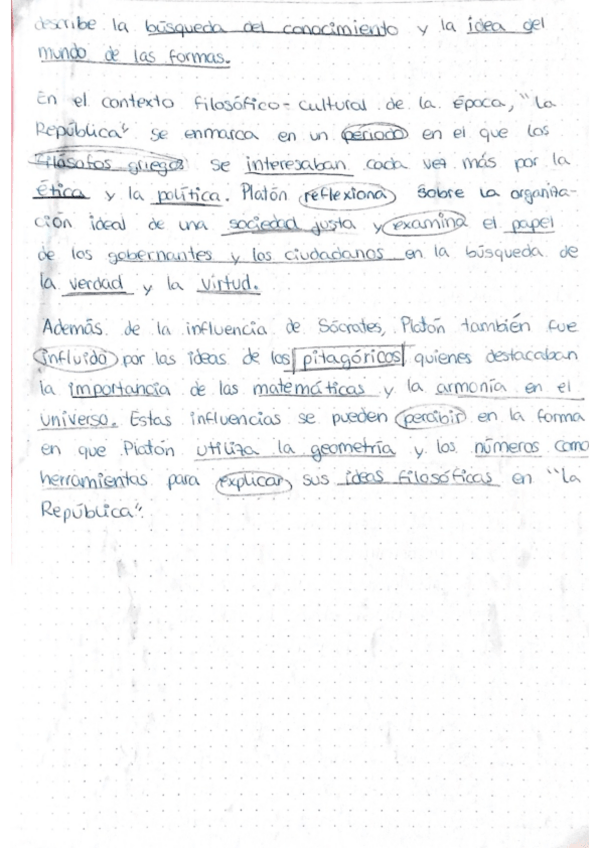 describe la búsqueda del conocimiento y la idea del
mundo de las formas.
En el contexto filosófico-cultural de la época, "la
República" se enmarca en un periodo en el que los
filósofos griegos se interesaban cada vez más por la
ética y la política. Platón reflexiona sobre la organiza-
ción ideal de una sociedad justa y examina el papel
de los gobernantes y los ciudadanos en la búsqueda de
la verdad y la virtud.
Además de la influencia de Sócrates, Platón también fue
influido por las ideas de los pitagóricos quienes destacaban
la importancia de las matemáticas y la armonía en el
universo. Estas influencias se pueden percibir en la forma
en que Platón utiliza la geometría y los números como
herramientas para explicar sus ideas filosóficas en "la
República".